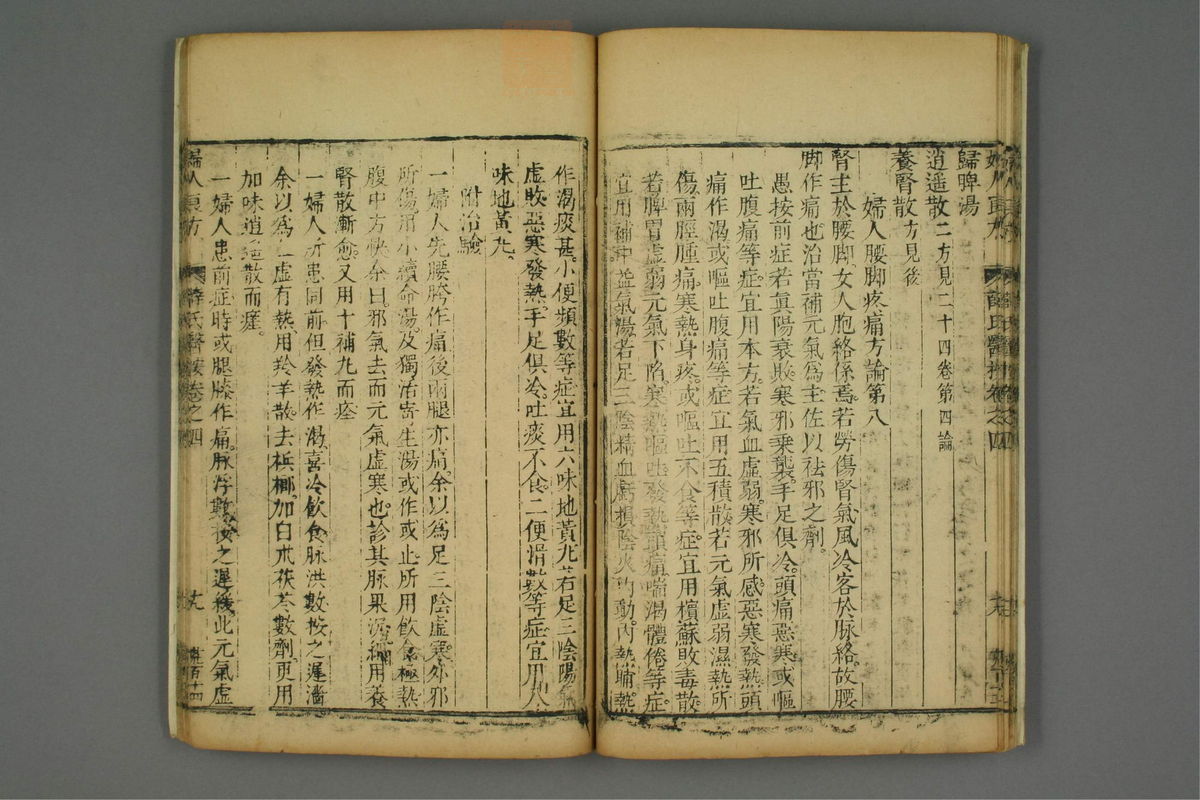 歸脾湯
逍遥散二方見二十四卷第四論
養腎散方見後
婦人腰脚疼痛方論第八
腎主於腰脚女人胞絡係焉若勞傷腎氣風冷客於脉絡故腰
脚作痛也治當補元氣爲主佐以祛邪之劑。
愚按前症若眞陽衰敗寒邪乗襲。手足俱冷。頭痛惡寒或嘔
吐腹痛等症宜用本方。若氣血虛弱。寒邪所感惡寒發熱頭
痛作渴或嘔吐腹痛等症宜用五積散若元氣虛弱濕熱所
傷。兩脛腫痛。寒熱身疼。或嘔吐不食等症。宜用檳蘇敗毒散。
若脾胃虛弱元氣下陷。寒熱嘔吐發熱頭痛喘渴體倦等症。
宜用補中益氣湯若足三陰精血虧損陰火内動。内熱晡熱。
作渴痰甚。小便頻數等症宜用六味地黃丸若足三陰陽氣
虛敗。惡寒發熱。手足俱冷。吐痰不食。二便滑數等症宜用八
味地黃丸、
附治驗
一婦人先腰胯作痛後兩腿亦痛。余以爲足三陰虛寒。外邪
所傷用小續命湯。及獨活寄生湯或作或止所用飲食極熱
腹中方快余曰。邪氣去而元氣虛寒也。診其脉果沉細用養
腎散漸愈。又用十補丸而痊
一婦人所患同前但發熱作渴。喜冷飲食脉洪數按之遲濇
余以爲血虛有熱。用羚羊散。去梹榔。加白朮茯苓數劑更用
加味逍遥散而痊。
一婦人患前症時或腿膝作痛。脉浮數按之遲緩。此元氣虛
婦人良方
薛氏醫按卷之四